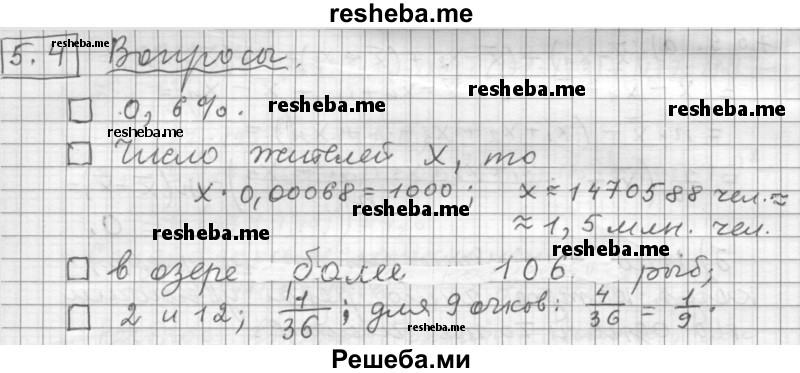 resheba.me
5.4 resheba.me Вопросы.
0,6%. resheba.me resheba.me
resheba.me
Число жителей х, то
х · 0,00068 = 1000; х ≈ 1470588 чел. ≈
resheba.me
≈ 1,5 млн. чел.
resheba.me resheba.me
в озере более 106 рыб;
2 и 12; 11/36; для 9 очков: 4/36 = 1/9.
resheba.me resheba.me
Решеба.ми